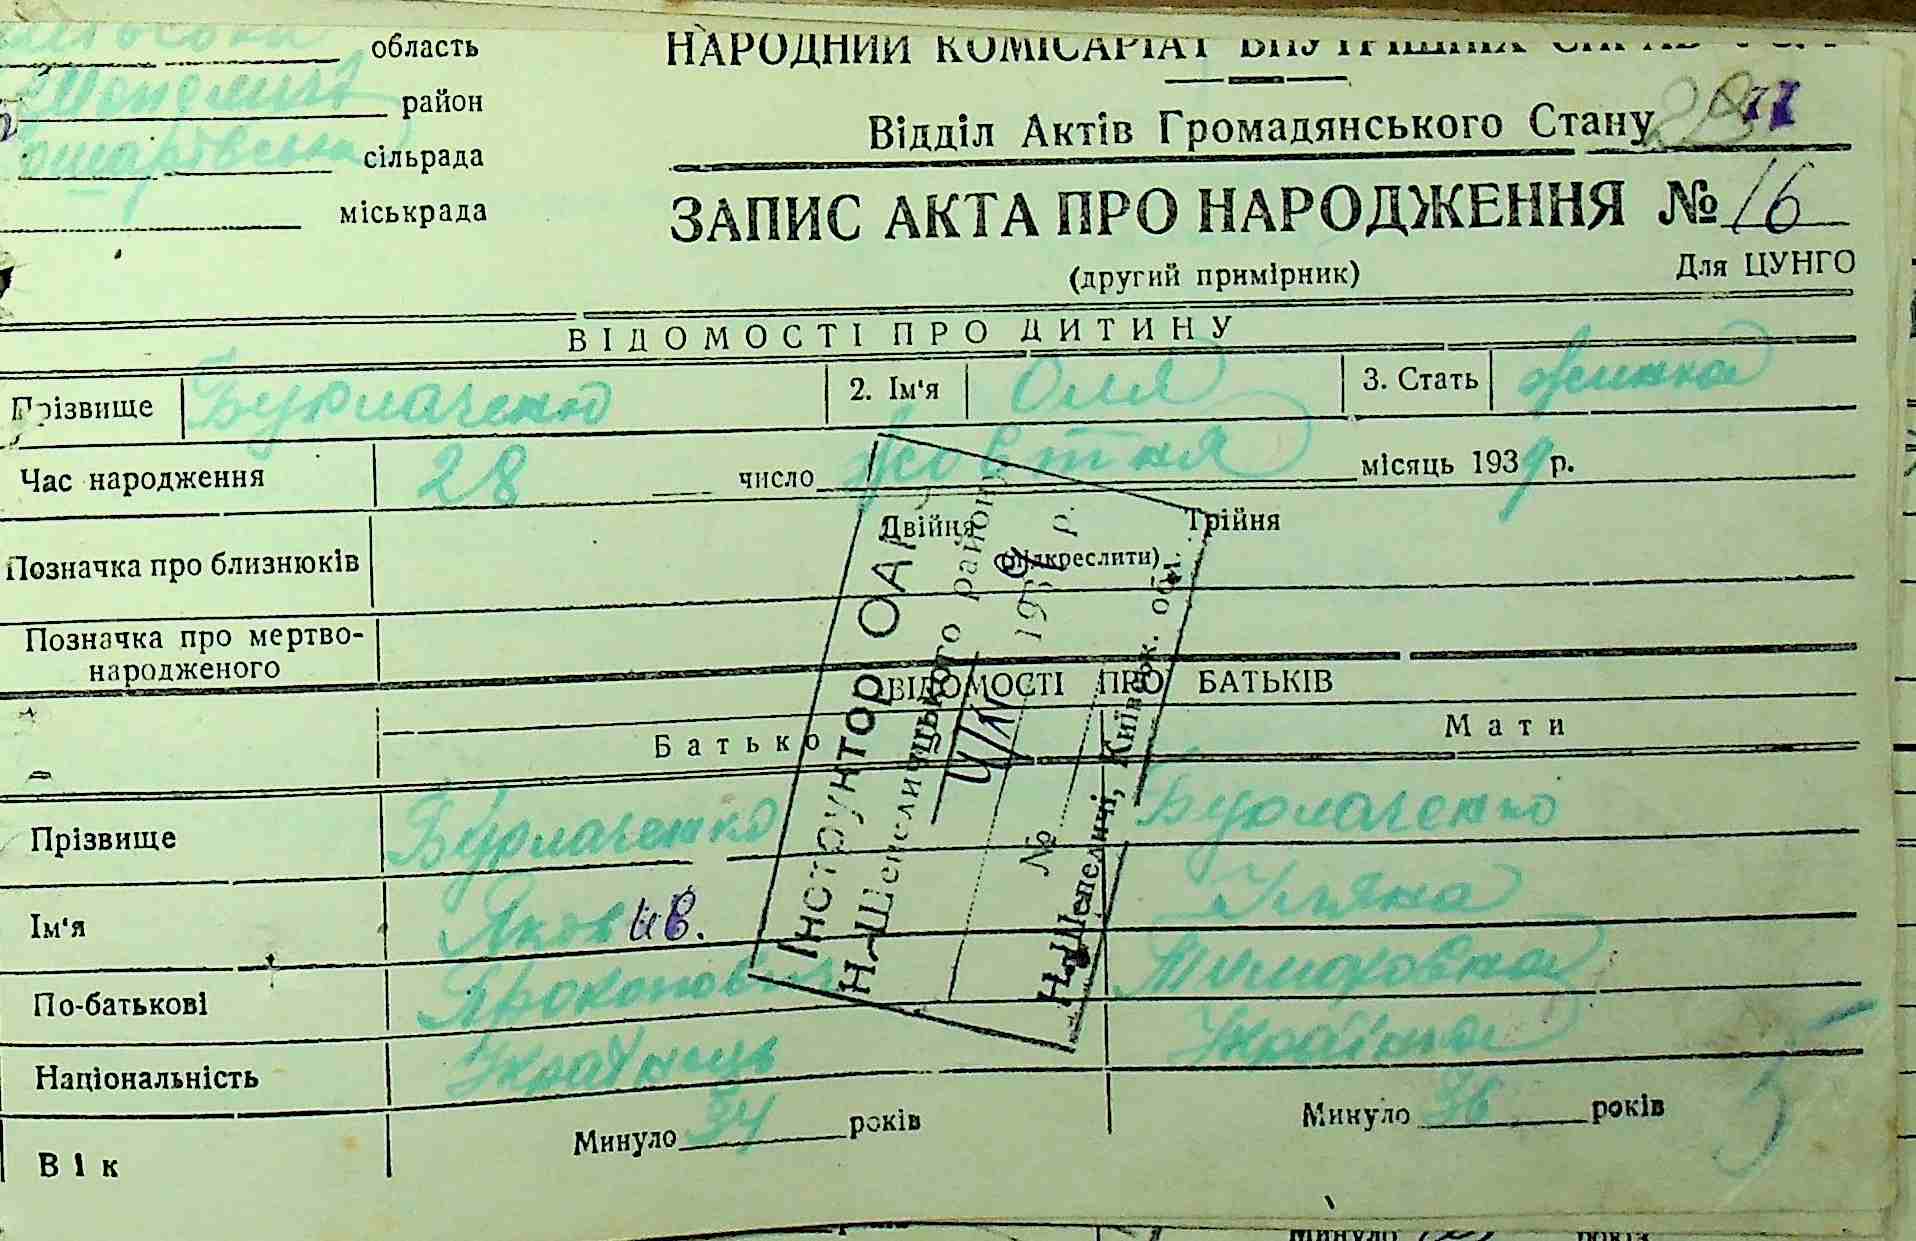 область
район
сільрада
міськрада
НАРОДНИЙ КОМІСАРІАТ ВНУТРІШНІХ СПРАВ
Відділ Актів Громадянського Стану
ЗАПИС АКТА ПРО НАРОДЖЕННЯ № 16
(другий примірник)
Для ЦУНГО
ВІДОМОСТІ ПРО ДИТИНУ
Прізвище Бурлаченко 2. Ім'я Оля 3. Стать жінка
Час народження 28 число жовтня місяць 1939 р.
Позначка про близнюків Двійня Трійня
(підкреслити)
Позначка про мертво-
народженого
ВІДОМОСТІ ПРО БАТЬКІВ
Батько Мати
Прізвище Бурлаченко Бурлаченко
Ім'я Яков Ульяна
По-батькові Прокопович Тимоховна
Національність Українець Українка
Вік Минуло 34 років Минуло 36 років
Інструктор ОАГС
Н.-Шепелицького району
№ 1939 р.
Н.-Шепеличі, Київськ. обл.